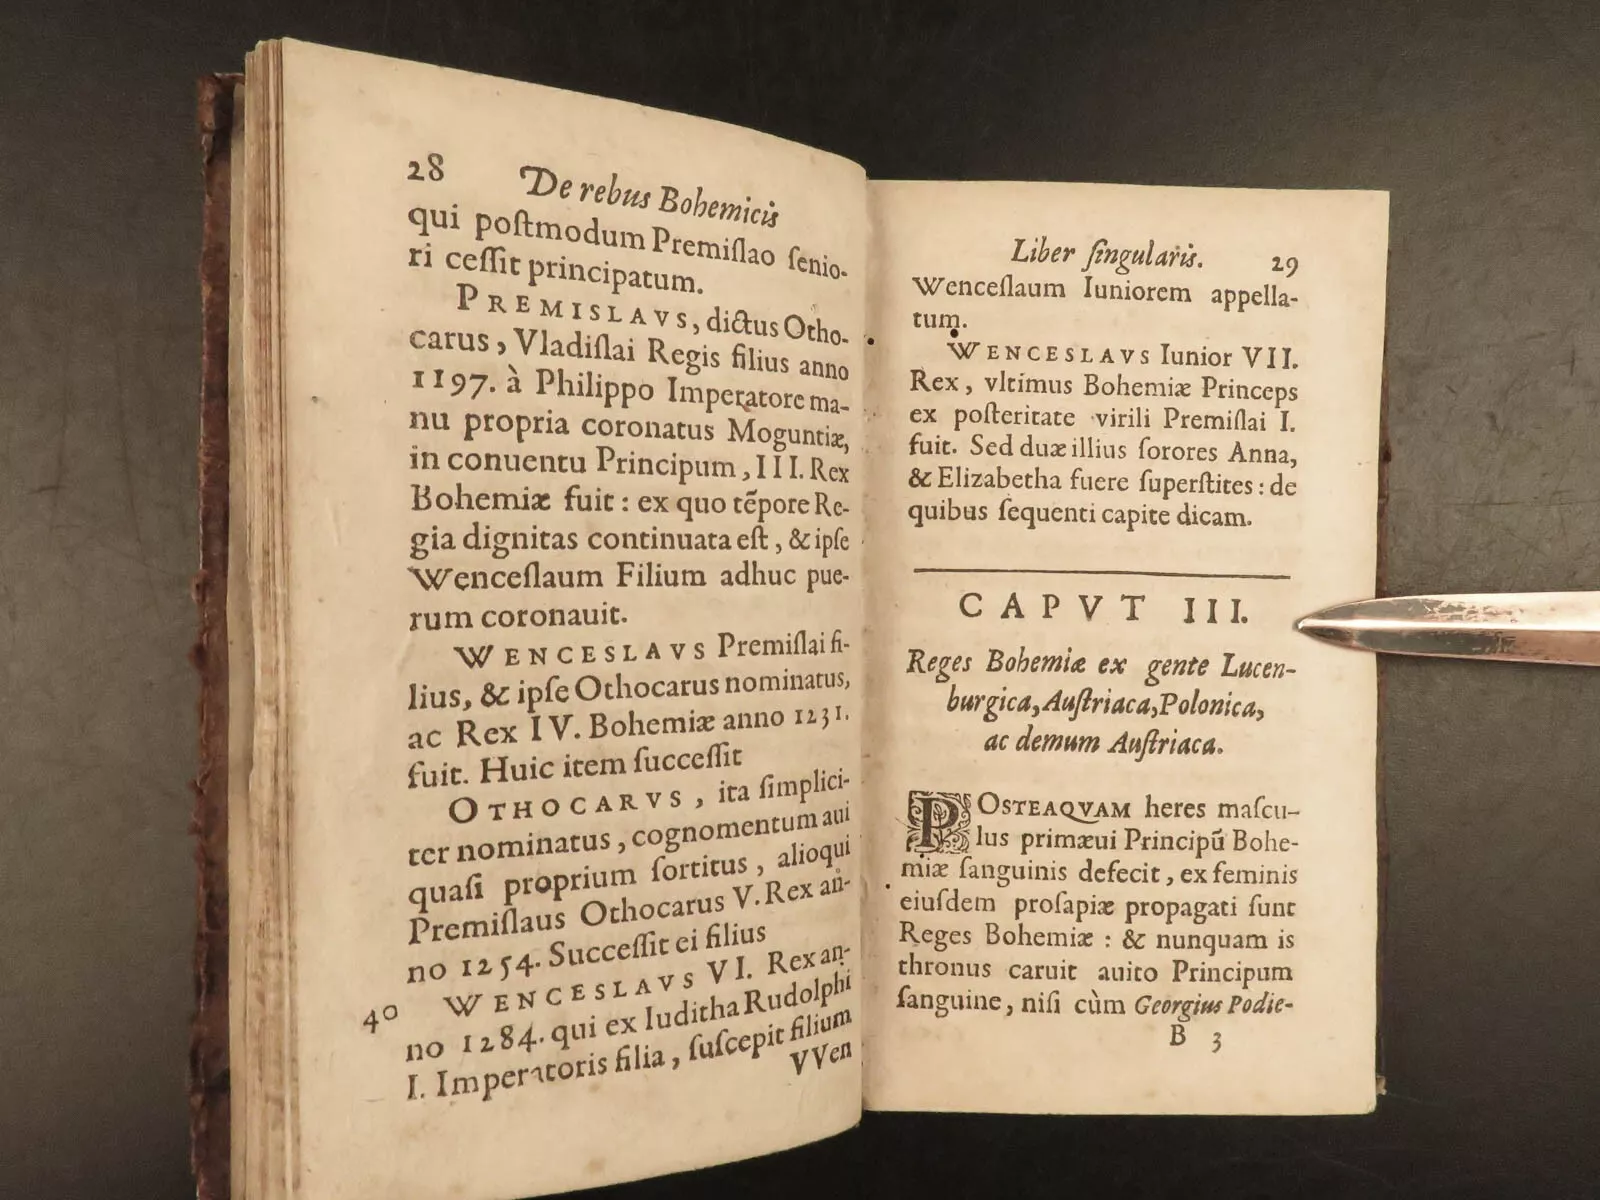 28 De rebus Bohemicis
qui poſtmodum Premiſlao ſenio-
ri ceſſit principatum.
PREMISLAVS, dictus Otho-
carus, Vladiſlai Regis filius anno
1197. à Philippo Imperatore ma-
nu propria coronatus Moguntiæ,
in conuentu Principum, III. Rex
Bohemiæ fuit: ex quo tẽpore Re-
gia dignitas continuata eſt, & ipſe
Wenceſlaum Filium adhuc pue-
rum coronauit.
WENCESLAVS Premiſlai fi-
lius, & ipſe Othocarus nominatus,
ac Rex IV. Bohemiæ anno 1231.
fuit. Huic item ſucceſſit
OTHOCARVS, ita ſimplici-
ter nominatus, cognomentum aui
quaſi proprium ſortitus, alioqui
Premiſlaus Othocarus V. Rex an-
no 1254. Succeſſit ei filius
WENCESLAVS VI. Rex an-
40
no 1284. qui ex Iuditha Rudolphi
I. Imperatoris filia, ſuſcepit filium
VVen
Liber ſingularis. 29
Wenceſlaum Iuniorem appella-
tum.
WENCESLAVS Iunior VII.
Rex, vltimus Bohemiæ Princeps
ex poſteritate virili Premiſlai I.
fuit. Sed duæ illius ſorores Anna,
& Elizabetha fuere ſuperſtites: de
quibus ſequenti capite dicam.
CAPVT III.
Reges Bohemiæ ex gente Lucen-
burgica, Auſtriaca, Polonica,
ac demum Auſtriaca.
POSTEAQVAM heres maſcu-
lus primæui Principũ Bohe-
miæ ſanguinis defecit, ex feminis
eiuſdem proſapiæ propagati ſunt
Reges Bohemiæ: & nunquam is
thronus caruit auito Principum
ſanguine, niſi cùm Georgius Podie-
B 3